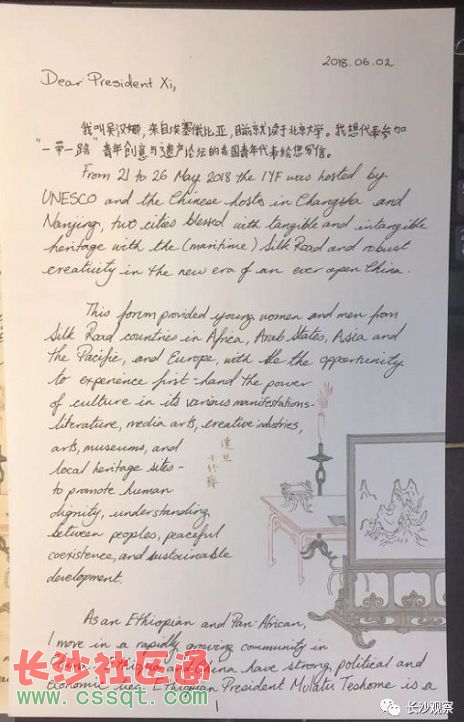 2018.06.02
Dear President Xi,
我叫吴汉娜，来自埃塞俄比亚，目前就读于北京大学。我想代表参加
"一带一路"青年创意与遗产论坛的各国青年代表给您写信。
From 21 to 26 May 2018 the IYF was hosted by
UNESCO and the Chinese hosts in Changsha and
Nanjing, two cities blessed with tangible and intangible
heritage with the (maritime) Silk Road and robust
creativity in the new era of an ever open China.
This forum provided young women and men from
Silk Road countries in Africa, Arab States, Asia and
the Pacific, and Europe, with the the opportunity
to experience first-hand the power
of culture in its various manifestations-
literature, media arts, creative industries,
arts, museums, and
local heritage sites-
to promote human
dignity, understanding
between peoples, peaceful
coexistence, and sustainable
development.
達旦
十竹齋
As an Ethiopian and Pan-African,
I move in a rapidly growing community in
China have strong, political and
economic ties. Ethiopian President Mulatu Teshome is a
1
长沙社区通
www.cssqt.com
长沙观察